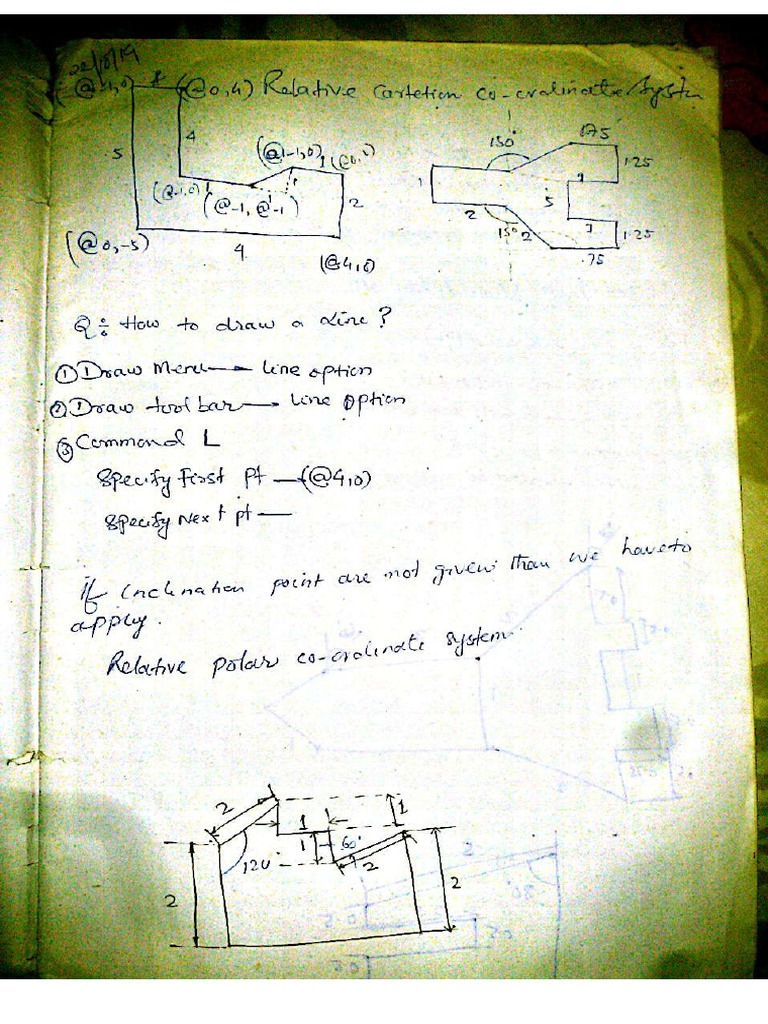 22/10/19
(@-1,0) 1 (@0,4) Relative cartetion co-ordinate System
5 4 (@1-1,0) 1 (@0,2)
(@-1,0) 1 1 2
(@-1, @-1)
(@0,-5) 4 (@4,0)
150° 1.75
1 1 1.25
2 5
150° 2 1 1.25
.75
Q:- How to draw a Line?
① Draw Menu → Line option
② Draw toolbar → Line option
③ Command L
Specify First pt — (@4,0)
Specify Next pt —
If Inclination point are not given than we have to
apply.
Relative polar co-ordinate system.
2 1 1
120° 1 60° 2
2 2